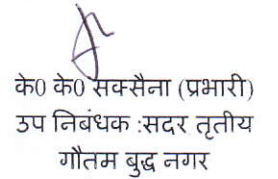 के0 के0 सक्सैना (प्रभारी)
उप निबंधक :सदर तृतीय
गौतम बुद्ध नगर